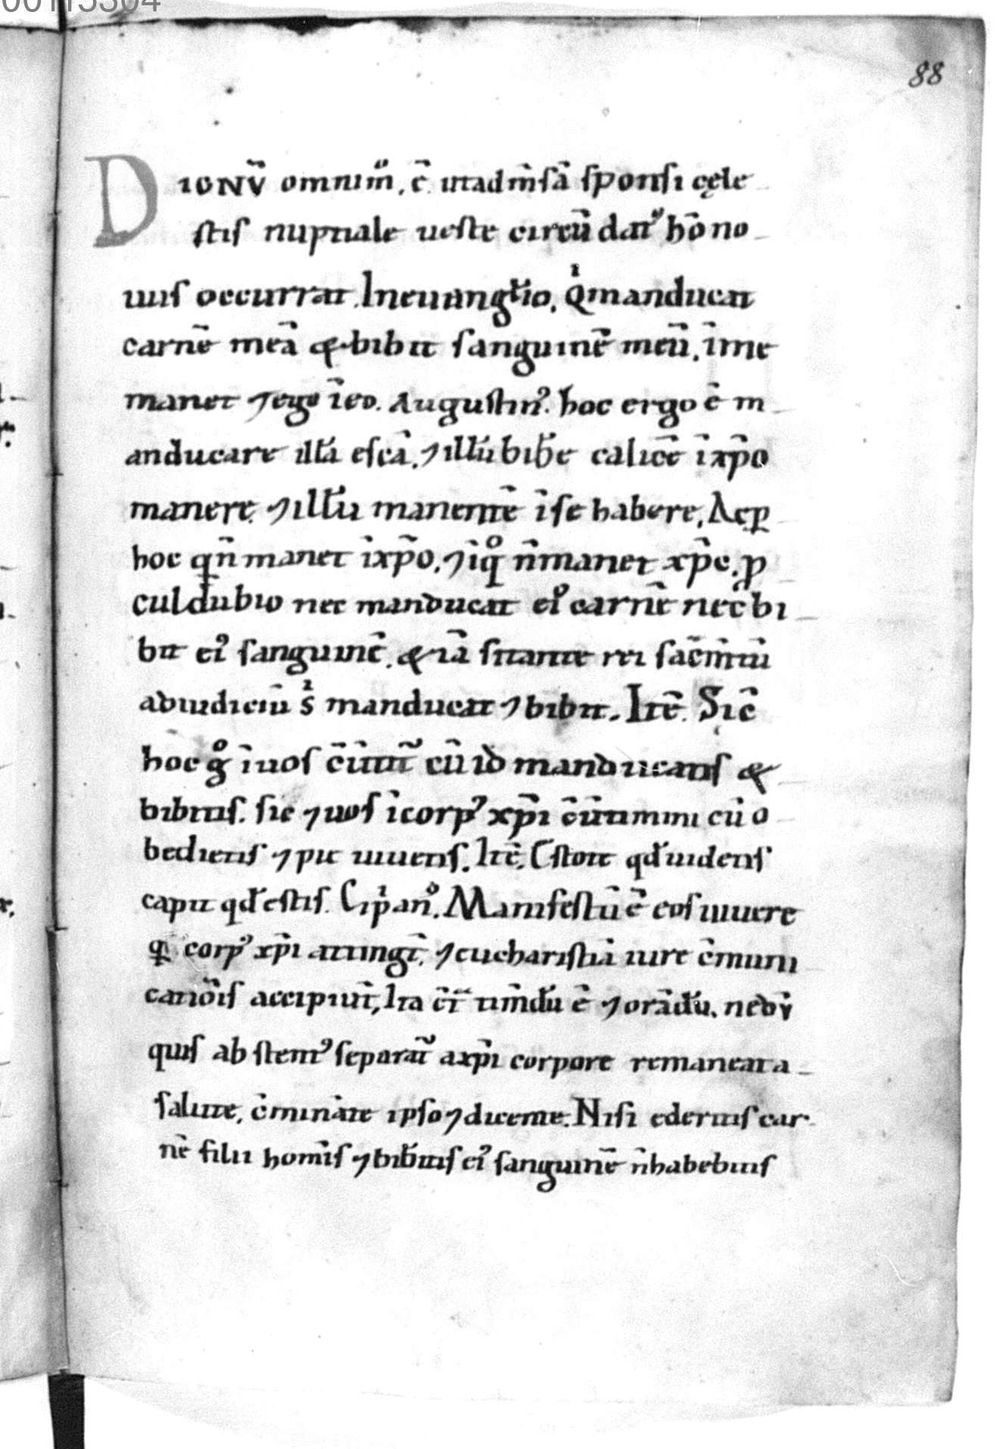 00115304
88
DIGNṼ omniũ, c̄ ut ad m̄sā sponsi cęle
stis nuptiale ueste circũdat᷑ hō no
uus occurrat. In euuangl̄io. Qͥ manducat
carnē meā & bibit sanguinē meū, ī me
manet ⁊ ego ī eo. Augustin᷒. hoc ergo ē m
anducare illā escā, ⁊ illū bib̄e calicē ī xp̄o
manere, ⁊ illū manentē ī se habere, Ac ꝑ
hoc qn̄ manet ī xp̄o, ⁊ ī qͦ n̄ manet xp̄c, ꝓ
culdubio nec manducat ei᷒ carnē nec bi
bit ei᷒ sanguinē, & iā si tantę rei sac̄m̄tū
ad iudiciū sͥ manducat ⁊ bibit. Itē. Sic̄
hoc gͦ ī uos c̄ūtit᷑ cū id manducatis &
bibitis. sic ⁊ uos ī corp᷒ xp̄i c̄ūtimini cū o
bedient᷒ ⁊ pie uiuetis. Itē, Estote qd̄ uidetis
caput qd̄ estis. Cipͥan᷒. Manifestū ē eos uiuere
qͥ corp᷒ xp̄i attingt̄, ⁊ eucharistiā iure c̄muni
catiōis accipiūt, Ita c̄t᷑ timd̄ū ē ⁊ orād̄ū, ne dū
quis abstent᷒ separat᷑ a xp̄i corpore remaneat a
salute, c̄minãte ipso ⁊ dicente. Nisi ederitis car
nē filii homīs ⁊ bib̄itis ei᷒ sanguinē n̄ habebitis